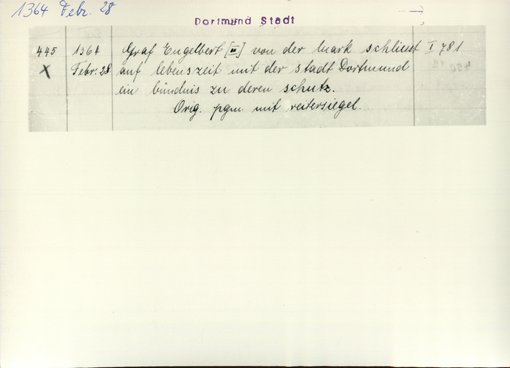 1364 Febr. 28
Dortmund Stadt
445 1364 Graf Engelbert [III] von der Mark schliest I 781
X Febr. 28 auf lebenszeit mit der stadt Dortmund
ein bündnis zu deren schutz.
Orig. pgm. mit reitersiegel.